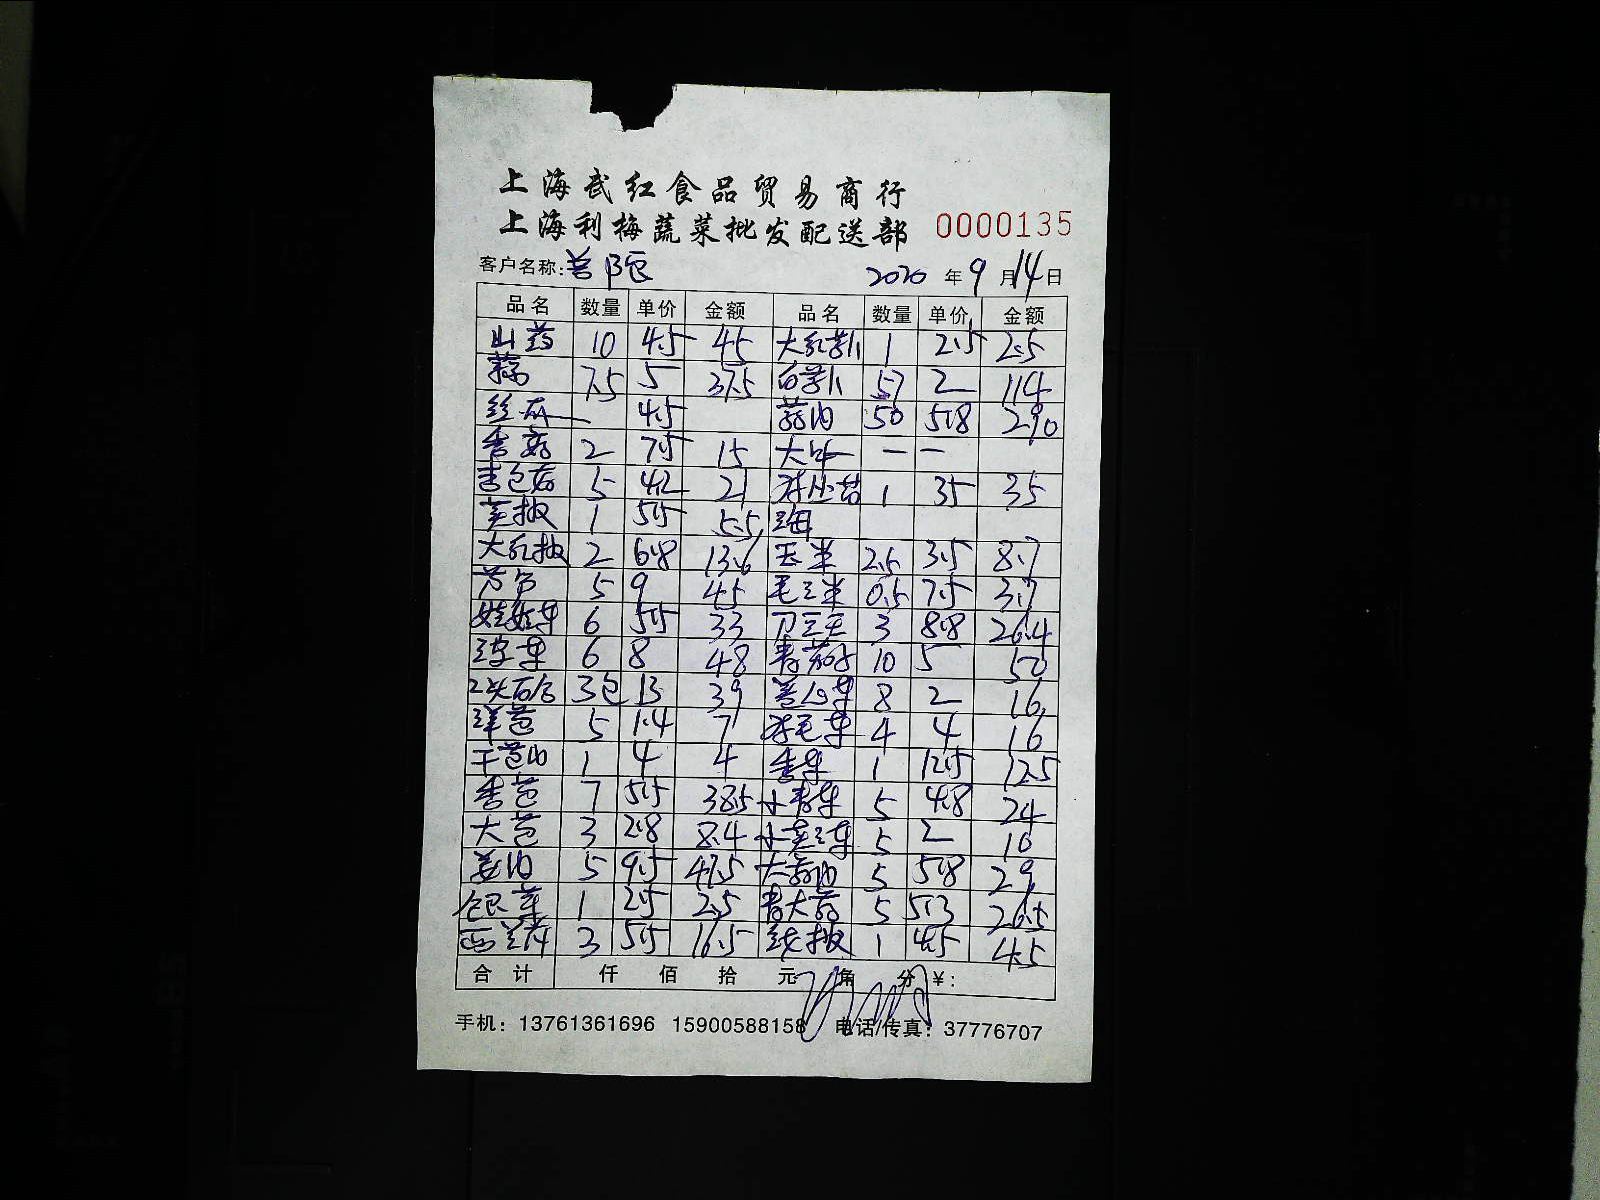 上海武红食品贸易商行
上海利梅蔬菜批发配送部 0000135
客户名称: 2020 年 9 月 14 日
品名 数量 单价 金额 品名 数量 单价 金额
山药 10 4.5 45 大红 1 2.5 2.5
蒜 7.5 5 37.5 白 57 2 114
丝瓜 4.5 50 5.8 290
香菇 2 7.5 15 大 — —
杏包菇 5 4.2 21 1 35 35
美椒 1 5.5 5.5
大红椒 2 6.8 13.6 玉米 2.5 3.5 8.7
芦笋 5 9 45 毛豆米 0.5 7.5 3.7
娃娃菜 6 5.5 33 刀豆 3 8.8 26.4
6 8 48 10 5 50
3包 13 39 8 2 16
洋芭 5 1.4 7 菜 4 4 16
干芭 1 4 4 香菜 1 12.5 12.5
香芭 7 5.5 38.5 小青菜 5 4.8 24
大芭 3 2.8 8.4 小 菜 5 2 10
姜 5 9.5 47.5 大 5 5.8 29
银芽 1 2.5 2.5 青大 5 5.3 26.5
西芹 3 5.5 16.5 线椒 1 4.5 4.5
合计 仟 佰 拾 元 角 分 ¥:
手机: 13761361696 15900588158 电话/传真: 37776707